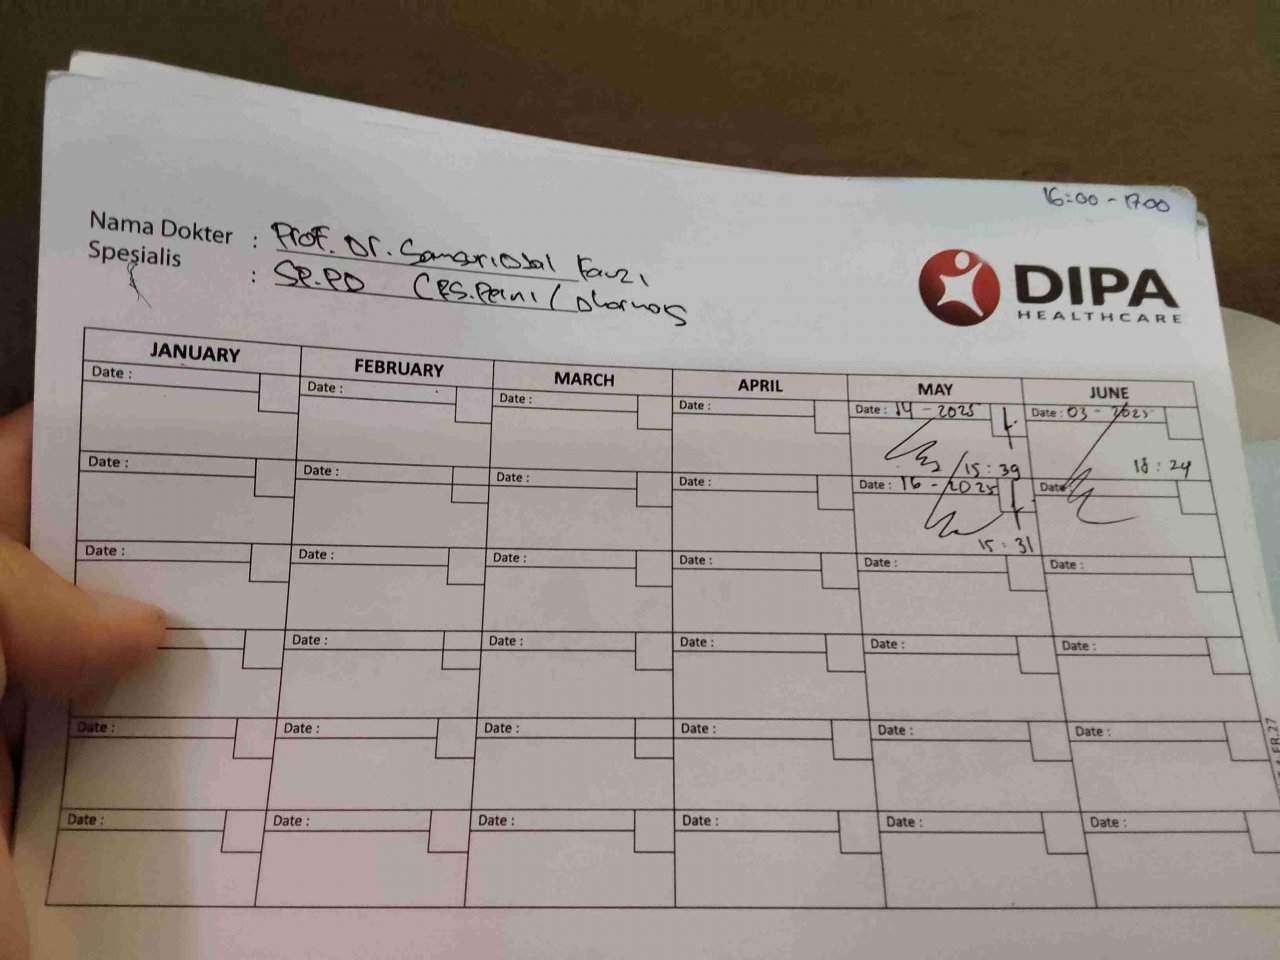 16:00 - 17.00
Nama Dokter : Prof. Dr. Fauzi
Spesialis : SP.PD (RS.
DIPA
HEALTHCARE
JANUARY FEBRUARY MARCH APRIL MAY JUNE
Date : Date : Date : Date : Date : 14 - 2025 Date : 03 - 2025
15 : 39 18 : 24
Date : Date : Date : Date : Date : 16 - 2025 Date
15 : 31
Date : Date : Date : Date : Date : Date :
Date : Date : Date : Date : Date :
Date : Date : Date : Date : Date : Date :
Date : Date : Date : Date : Date : Date :